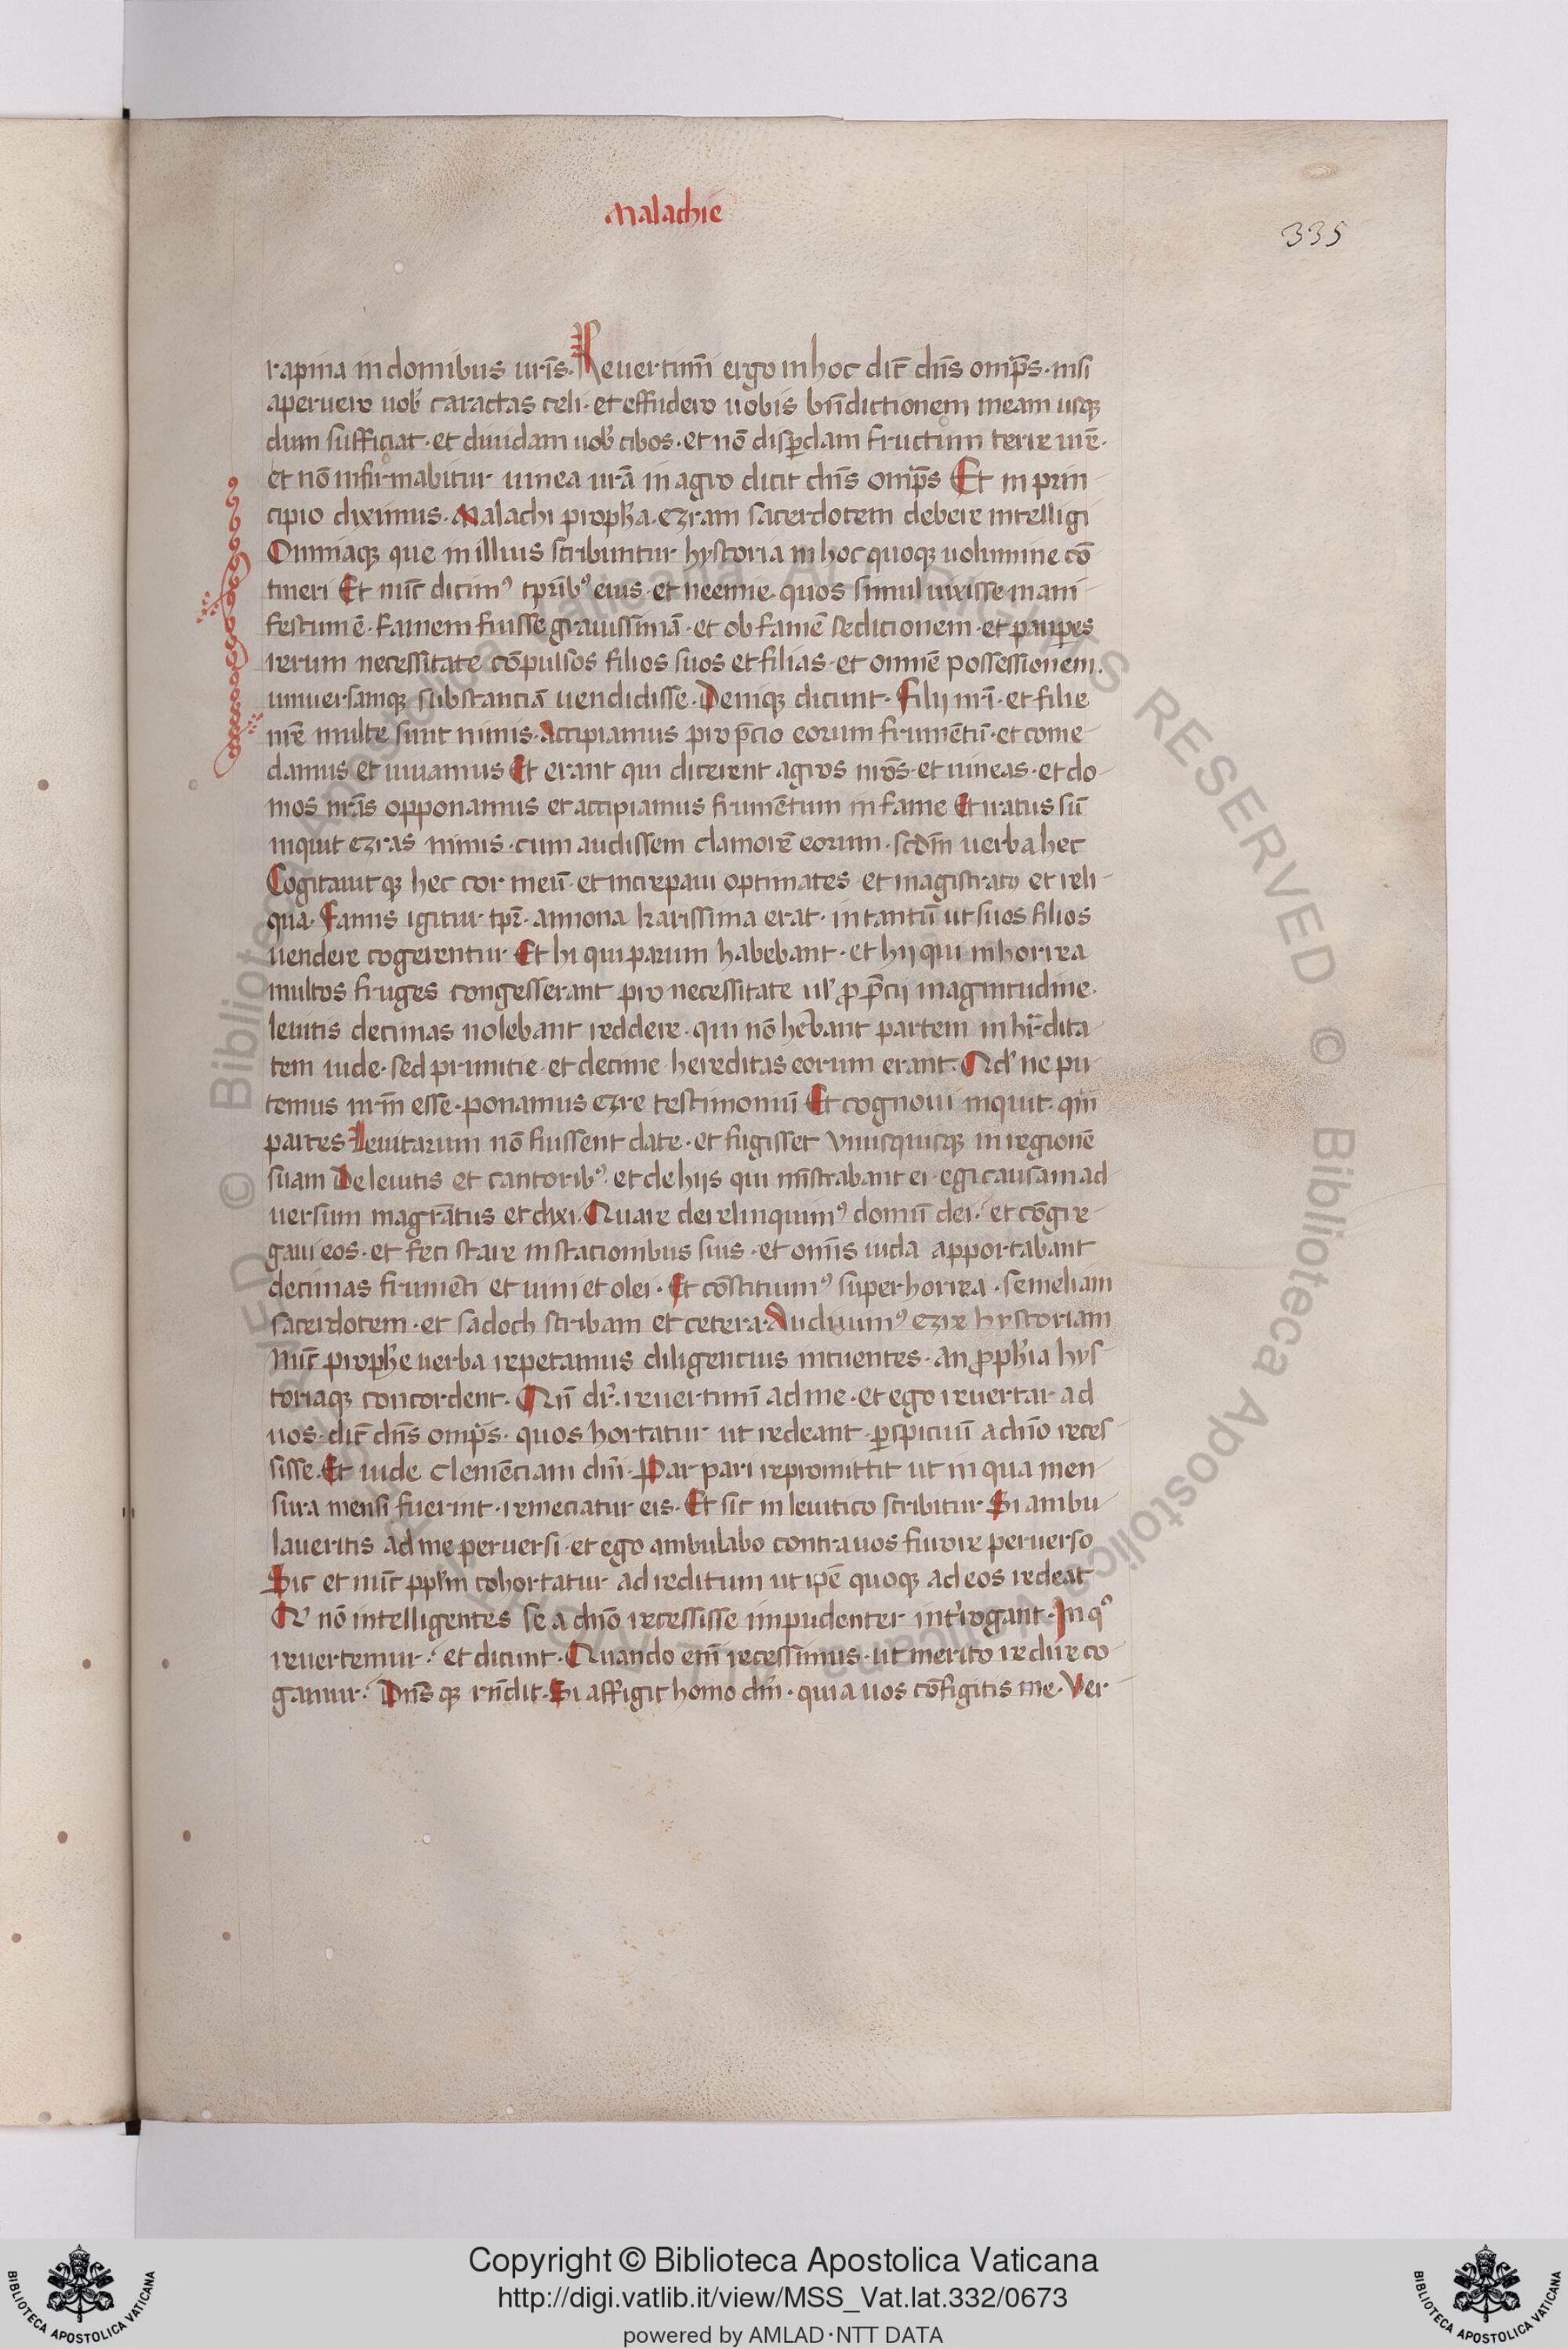 Malachie
335
rapina in domibus ur̄is. Reuertimī ergo in hoc dic̄ dn̄s omp̄s. nisi
aperuero uob̾ caractas celi. et effudero uobis bn̄dictionem meam usqꝫ
dum sufficiat. et diuidam uob̾ cibos. et nō disꝑdam fructum terre ur̄e.
et nō infirmabitur uinea ur̄a in agro dicit dn̄s omp̄s Et in prin
cipio diximus. Malachi proph̄a. ezram sacerdotem debere intelligi
Omniaqꝫ que in illius scribuntur hystoria in hoc quoqꝫ uolumine cō
tineri Et nūc dicimꝰ tp̄ribꝰ eius. et neemie. quos simul uixisse mani
festum ē. Famem fuisse grauissimā. et ob famē sedicionem. et pauꝑes
rerum necessitate cōpulsos filios suos et filias. et omnē possessionem.
uniuersamqꝫ substanciā uendidisse. Deniqꝫ dicunt. Filij nr̄i. et filie
nr̄e multe sunt nimis. Accipiamus pro p̄cio eorum frumētū. et come
damus et uiuamus Et erant qui dicerent agros nr̄os. et uineas. et do
mos nr̄as opponamus et accipiamus frumētum in fame Et iratus sū
inquit ezras nimis. cum audissem clamorē eorum. scd̄m uerba hec
Cogitauitqꝫ hec cor meū. et increpaui optimates et magistratꝰ et reli
qua. Famis igitur tp̄r. annona karissima erat. in tantū ut suos filios
uendere cogerentur Et hi qui parum habebant. et hij qui in horrea
multos fruges congesserant pro necessitate ul̾ ꝓ p̄cij magnitudine.
leuitis decimas nolebant reddere. qui nō hēbant partem in hr̄dita
tem iude. sed primitie et decime hereditas eorum erant. Qd̾ ne pu
temus nr̄m esse. ponamus ezre testimoniū Et cognoui inquit. qm̄
partes leuitarum nō fuissent date. et fugisset Vnusquisqꝫ in regionē
suam De leuitis et cantoribꝰ. et de hijs qui mīstrabant ei. egi causam ad
uersum magr̄atus et dixi. Quare derelinquimꝰ domū dei. et cōgre
gaui eos. et feci stare in stacionibus suis. et omīs iuda apportabant
decimas frumēti et uini et olei. Et cōstituimꝰ super horrea. semeliam
sacerdotem. et sadoch scribam et cetera. Audiuimꝰ ezre hystoriam
Nūc prophē uerba repetamus diligencius intuentes. an ꝓph̄ia hys
toriaqꝫ concordent. Qn̄ dr̄. reuertimī ad me. et ego reuertar ad
uos. dic̄ dn̄s omp̄s. quos hortatur ut redeant. ꝑspicuū a dn̄o reces
sisse. Et uide clemēciam dn̄i. Par pari repromittit ut in qua men
sura mensi fuerint. remeciatur eis. Et sic̄ in leuitico scribitur Si ambu
laueritis ad me peruersi. et ego ambulabo contra uos furore peruerso
Sic et nūc ppl̄m cohortatur ad reditum ut ip̄e quoqꝫ ad eos redeat
Qi nō intelligentes se a dn̄o recessisse impudenter int̾rogant. In qͦ
reuertemur. et dicunt. Quando eni recessimus. ut merito redire co
gamur. Dn̄s qꝫ rn̄dit. Si affigit homo dm̄. quia uos cōfigitis me. Ver
Copyright © Biblioteca Apostolica Vaticana
http://digi.vatlib.it/view/MSS_Vat.lat.332/0673
powered by AMLAD·NTT DATA